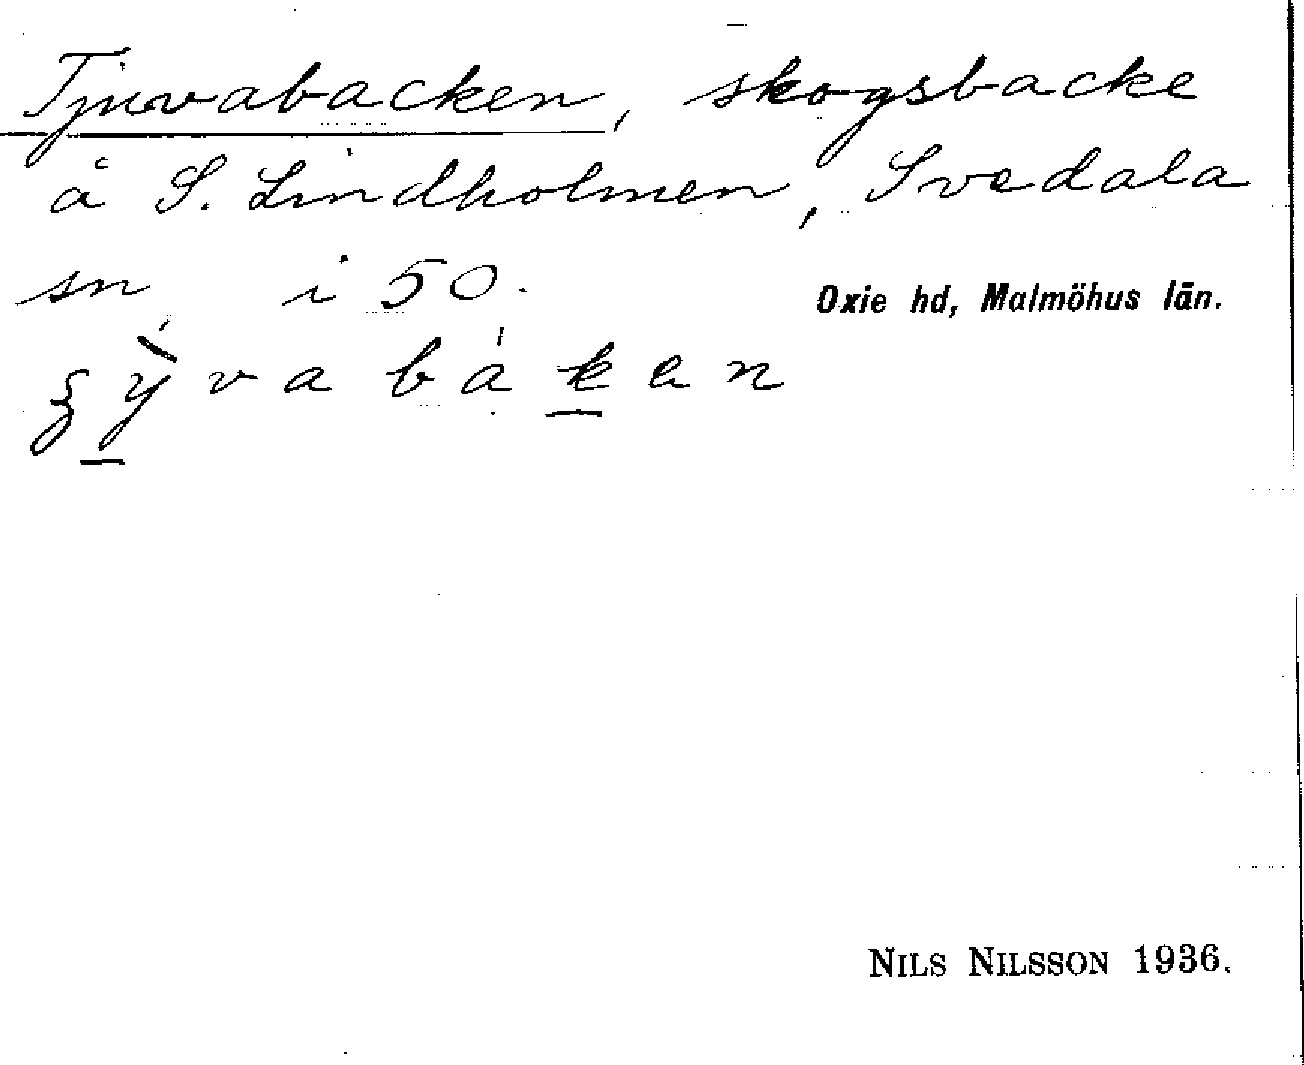 Tjuvabacken, skogsbacke
å S. Lindholmen, Svedala
sn i 50.
Oxie hd, Malmöhus län.
ʒỳvabákan
NILS NILSSON 1936.